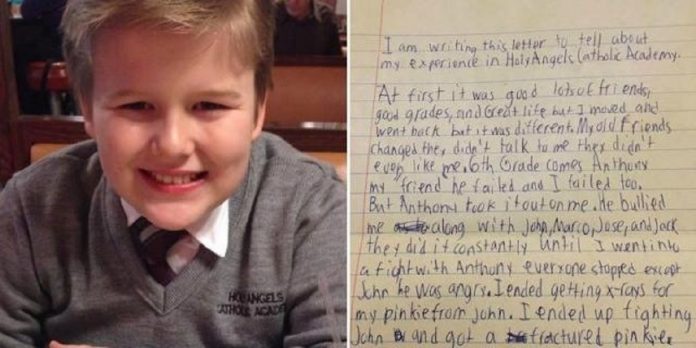 HOLY ANGELS
CATHOLIC ACADEMY
I am writing this letter to tell about
my experience in Holy Angels Catholic Academy.
At first it was good lots of friends,
good grades, and Great life but I moved and
went back but it was different. My old friends
changed they didn't talk to me they didn't
even like me. 6th Grade comes Anthony
my friend he failed and I failed too.
But Anthony took it out on me. He bullied
me along with John, Marco, Jose, and Jack
they did it constantly until I went into
a fight with Anthony everyone stopped except
John he was angry. I ended getting x-rays for
my pinkie from John. I ended up fighting
John and got a fractured pinkie.